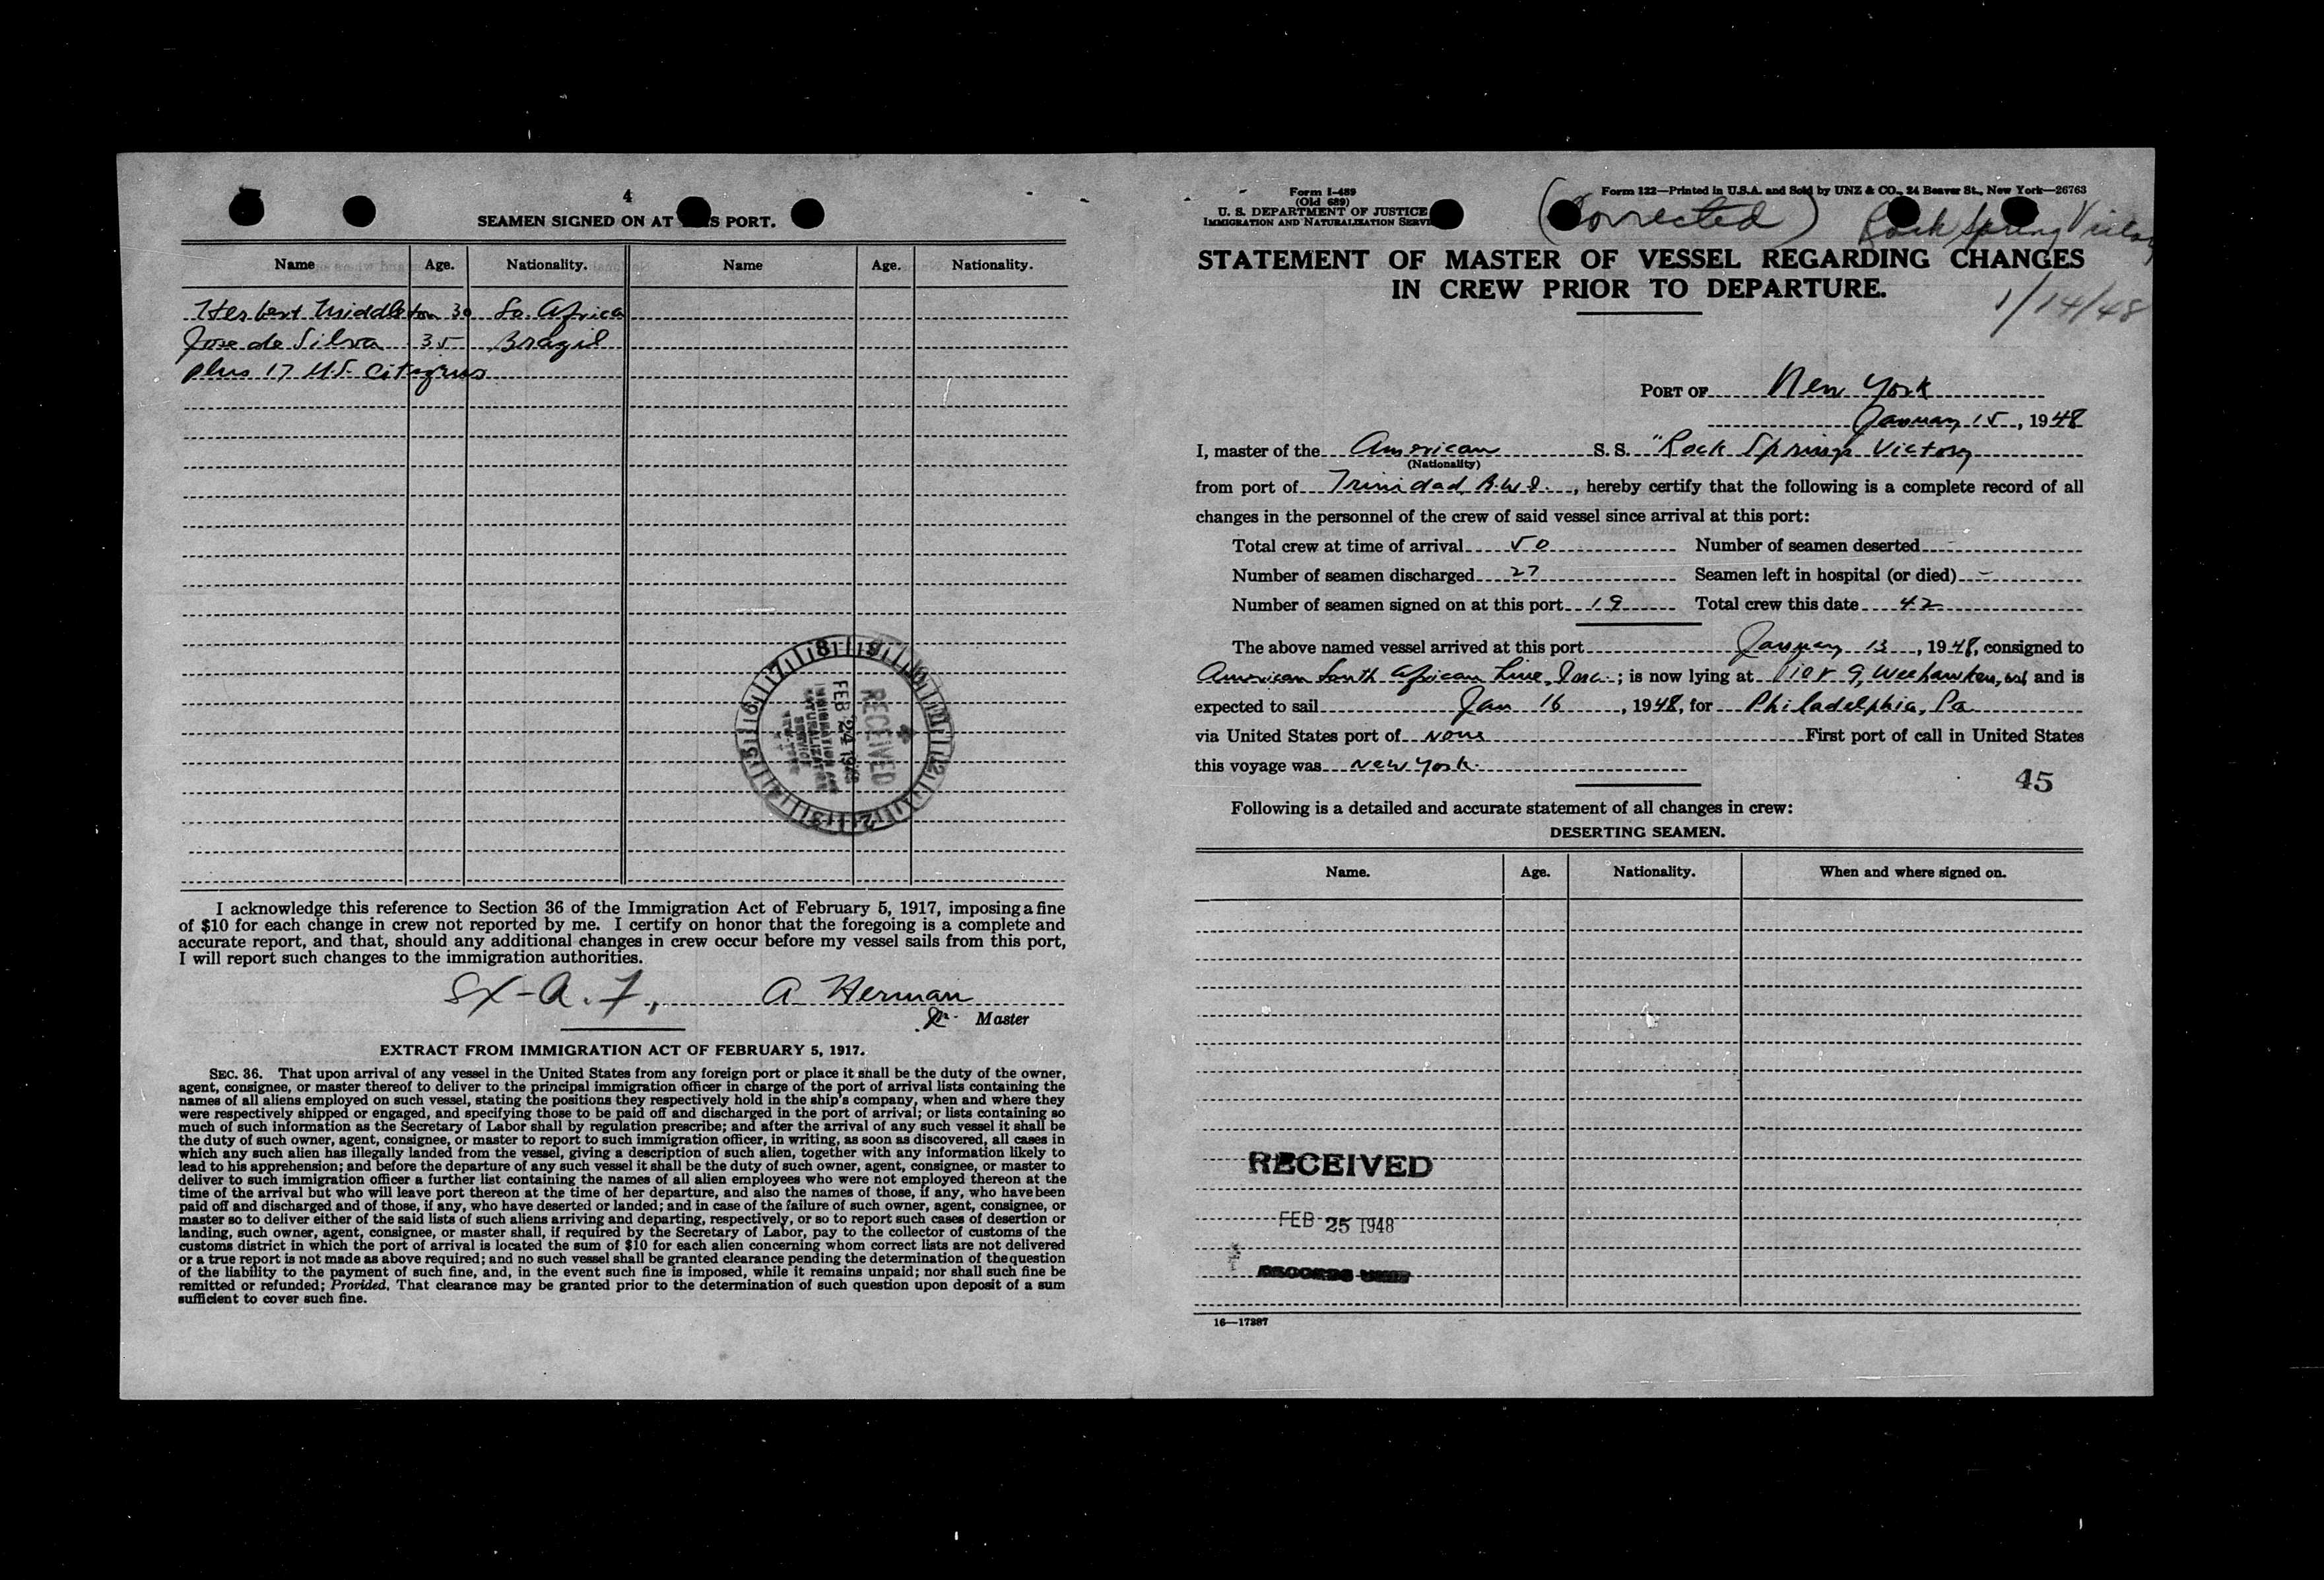 4
SEAMEN SIGNED ON AT THIS PORT.
Name Age. Nationality. Name Age. Nationality.
Herbert Middleton 30 So. Africa
Jose de Silva 35 Brazil
plus 17 U.S. Citizens
RECEIVED
FEB 24 1948
IMMIGRATION AND
NATURALIZATION
SERVICE
I acknowledge this reference to Section 36 of the Immigration Act of February 5, 1917, imposing a fine
of $10 for each change in crew not reported by me. I certify on honor that the foregoing is a complete and
accurate report, and that, should any additional changes in crew occur before my vessel sails from this port,
I will report such changes to the immigration authorities.
A Herman
Master
EXTRACT FROM IMMIGRATION ACT OF FEBRUARY 5, 1917.
SEC. 36. That upon arrival of any vessel in the United States from any foreign port or place it shall be the duty of the owner,
agent, consignee, or master thereof to deliver to the principal immigration officer in charge of the port of arrival lists containing the
names of all aliens employed on such vessel, stating the positions they respectively hold in the ship's company, when and where they
were respectively shipped or engaged, and specifying those to be paid off and discharged in the port of arrival; or lists containing so
much of such information as the Secretary of Labor shall by regulation prescribe; and after the arrival of any such vessel it shall be
the duty of such owner, agent, consignee, or master to report to such immigration officer, in writing, as soon as discovered, all cases in
which any such alien has illegally landed from the vessel, giving a description of such alien, together with any information likely to
lead to his apprehension; and before the departure of any such vessel it shall be the duty of such owner, agent, consignee, or master to
deliver to such immigration officer a further list containing the names of all alien employees who were not employed thereon at the
time of the arrival but who will leave port thereon at the time of her departure, and also the names of those, if any, who have been
paid off and discharged and of those, if any, who have deserted or landed; and in case of the failure of such owner, agent, consignee, or
master so to deliver either of the said lists of such aliens arriving and departing, respectively, or so to report such cases of desertion or
landing, such owner, agent, consignee, or master shall, if required by the Secretary of Labor, pay to the collector of customs of the
customs district in which the port of arrival is located the sum of $10 for each alien concerning whom correct lists are not delivered
or a true report is not made as above required; and no such vessel shall be granted clearance pending the determination of the question
of the liability to the payment of such fine, and, in the event such fine is imposed, while it remains unpaid; nor shall such fine be
remitted or refunded; Provided, That clearance may be granted prior to the determination of such question upon deposit of a sum
sufficient to cover such fine.
Form I-489
(Old 689)
U. S. DEPARTMENT OF JUSTICE
IMMIGRATION AND NATURALIZATION SERVICE
Form 122—Printed in U.S.A. and Sold by UNZ & CO., 24 Beaver St., New York—26763
(Corrected) Rock Spring Victory
1/14/48
STATEMENT OF MASTER OF VESSEL REGARDING CHANGES
IN CREW PRIOR TO DEPARTURE.
PORT OF New York
January 15, 1948
I, master of the American S. S. "Rock Springs Victory
(Nationality)
from port of Trinidad B.W.I., hereby certify that the following is a complete record of all
changes in the personnel of the crew of said vessel since arrival at this port:
Total crew at time of arrival 50 Number of seamen deserted -
Number of seamen discharged 27 Seamen left in hospital (or died) -
Number of seamen signed on at this port 19 Total crew this date 42
The above named vessel arrived at this port January 13, 1948, consigned to
American South African Line, Inc.; is now lying at Pier 9, Weehawken, and is
expected to sail Jan 16, 1948, for Philadelphia, Pa
via United States port of None First port of call in United States
this voyage was New York.
45
Following is a detailed and accurate statement of all changes in crew:
DESERTING SEAMEN.
Name. Age. Nationality. When and where signed on.
RECEIVED
FEB 25 1948
RECORDS UNIT
16—17287